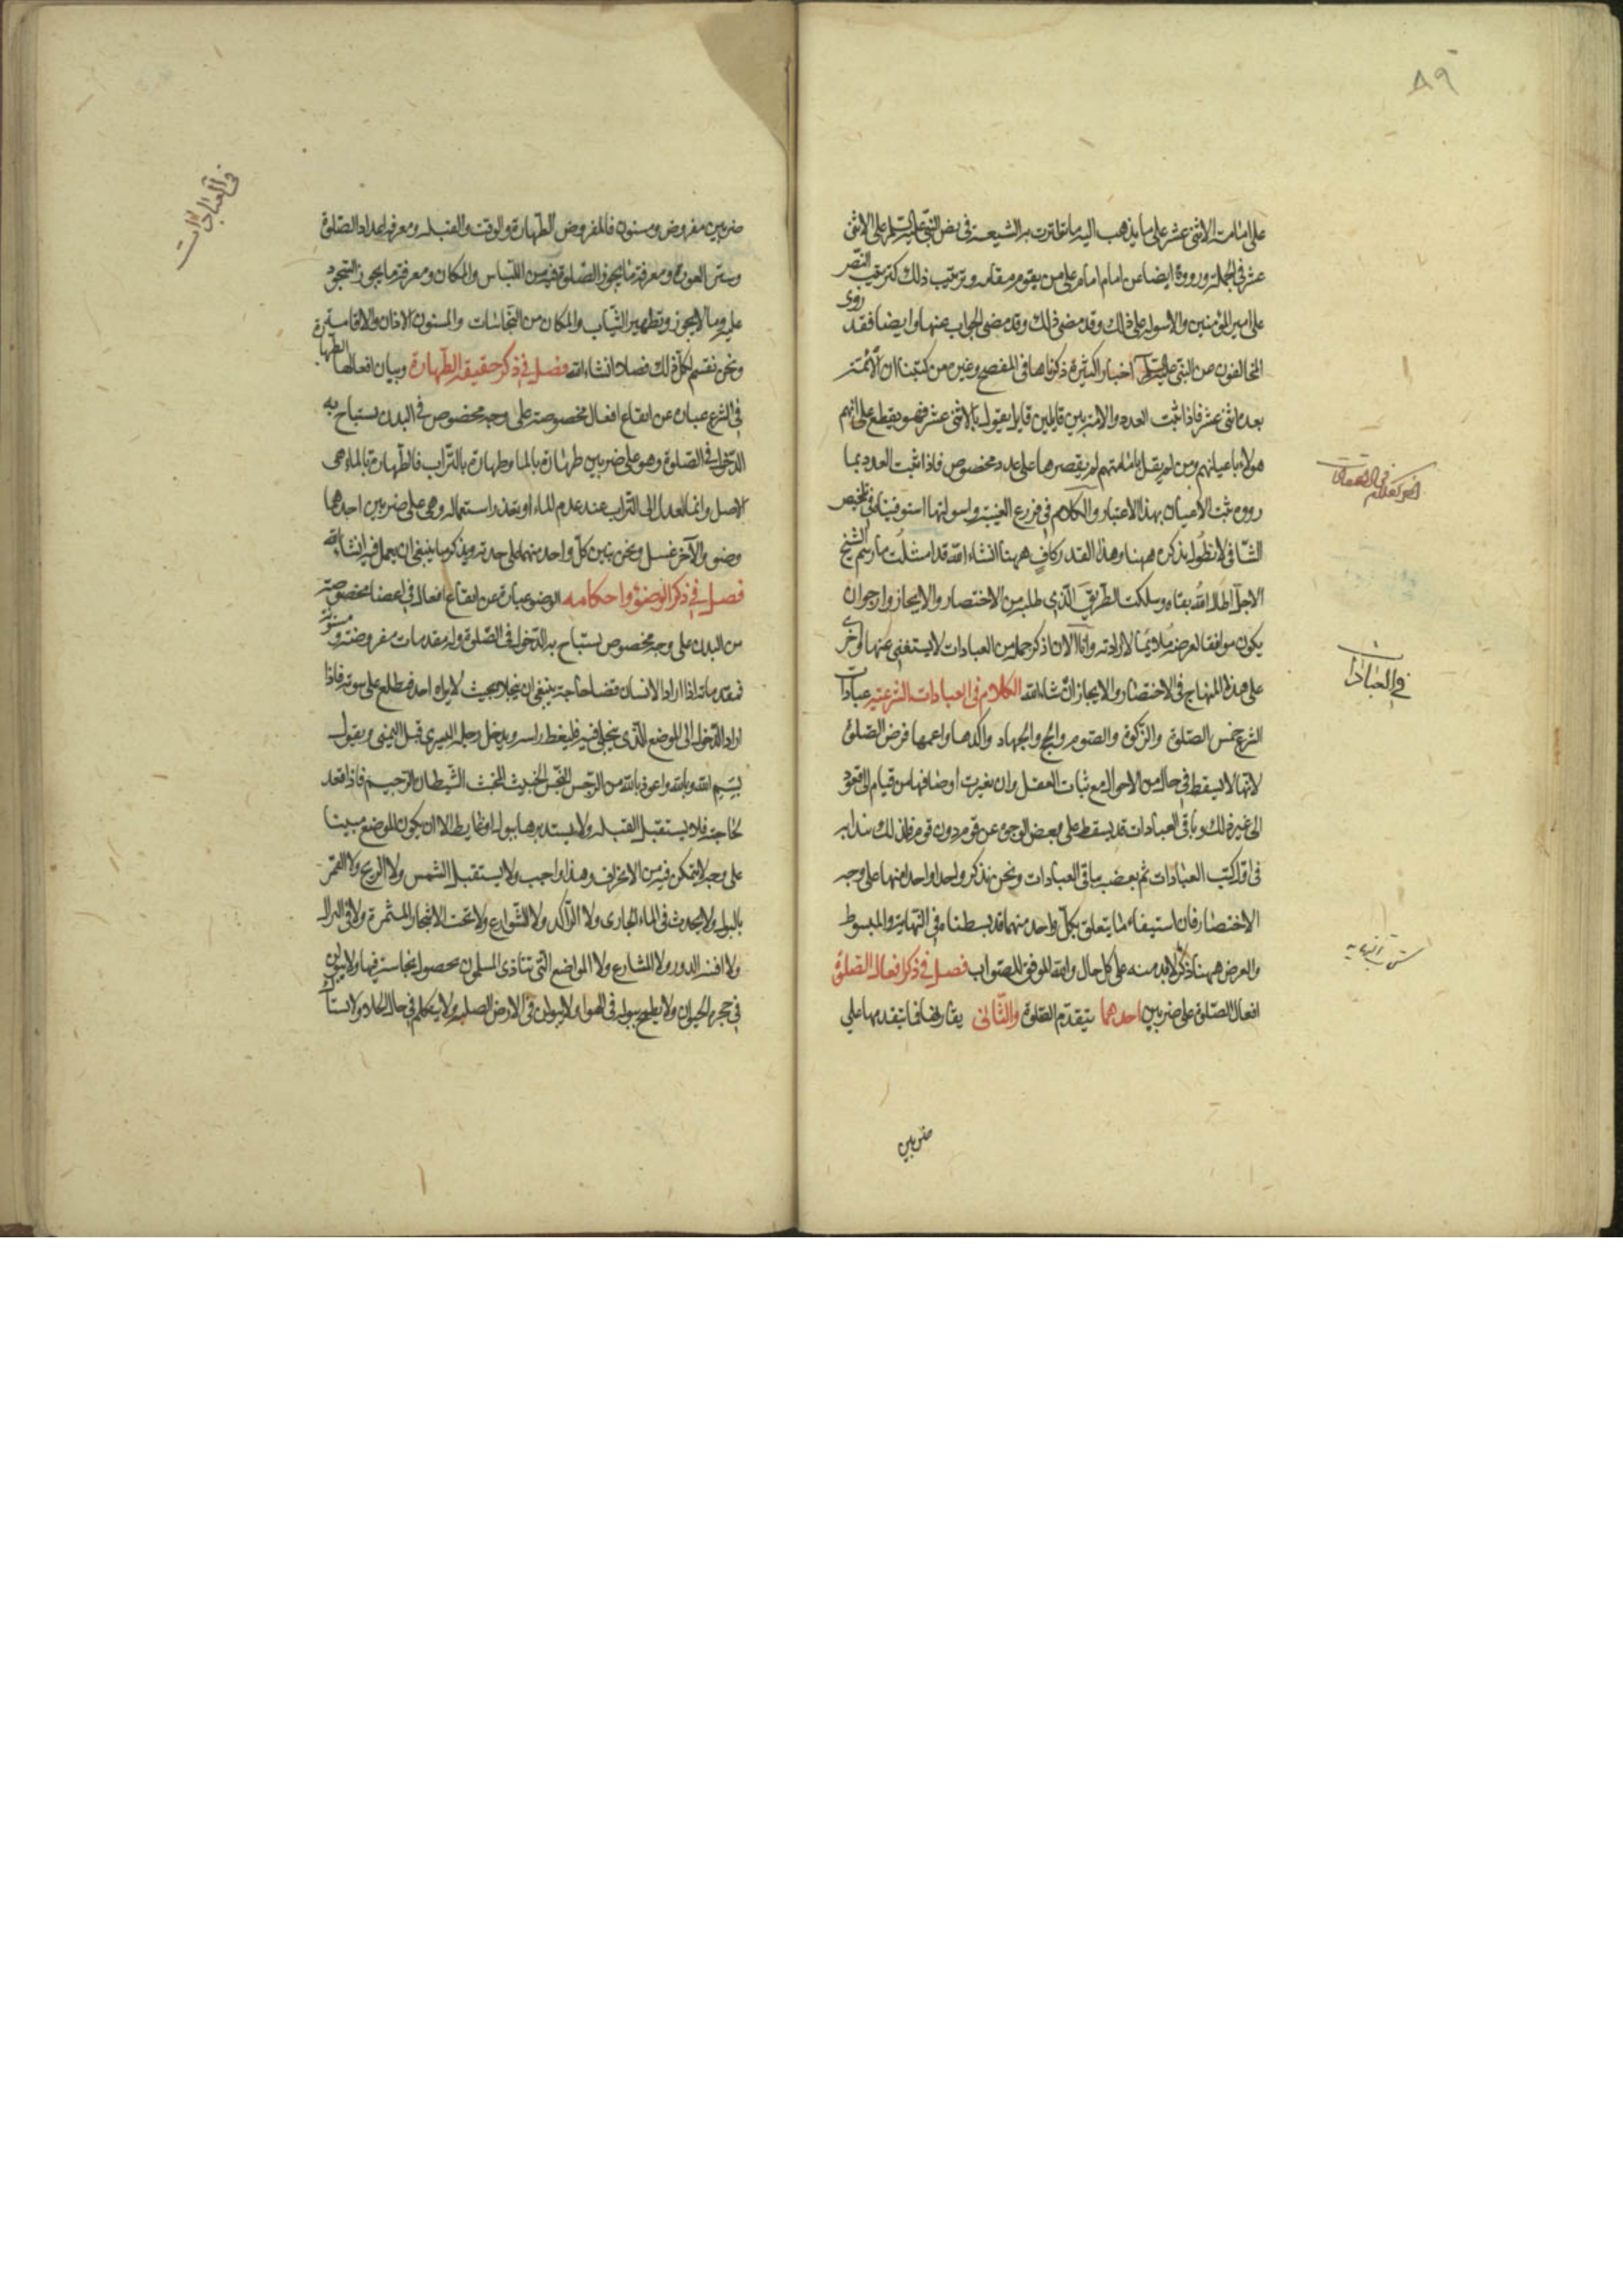 ٨٩
على امامة الاثنى عشر على ما يذهب اليه ما تواترت به الشيعة فى نص النبى عليه السلم على الاثنى
عشر فى الجملة ورووه ايضا عن امام امام على من يقوم مقامه وترتيب ذلك كترتيب النص
على امير المؤمنين والاسولة على ذلك وقد مضى ذلك وقد مضى الجواب عنها وايضا فقد روى
المخالفون عن النبى عليه السلم اخبارا كثيرة ذكرناها فى المفصح وغيره من كتبنا ان الائمة
بعده اثنى عشر فاذا ثبت العدد والامة بين قايلين قايل يقول بالاثنى عشر فهو يقطع على انهم
هولاء باعيانهم ومن لم يقل بامامتهم لم يقصرها على عدد مخصوص فاذا ثبت العدد بما
رووه ثبت الاعيان بهذا الاعتبار والكلام فى فروع الغيبة واسولتها استوفيناه فى تلخيص
الشافى لا نطول بذكره ههنا وهذا القدر كاف ههنا انشاء الله قد امتثلت ما رسم الشيخ
الاجل اطال الله بقاه وسلكت الطريق الذى طلبه من الاختصار والايجاز وارجو ان
يكون موافقا لغرضه ملايما لارادته وانا الان اذكر جملة من العبادات لا يستغنى عنها واخرى
على هذا المنهاج فى الاختصار والايجاز ان شاء الله الكلام فى العبادات الشرعية عبادات
الشرع خمس الصلوة والزكوة والصوم والحج والجهاد واكدها واعمها فرض الصلوة
لانها لا يسقط فى حال من الاحوال مع ثبات العقل وان تغيرت اوصافها من قيام الى قعود
الى غير ذلك وباقى العبادات قد يسقط على بعض الوجوه عن قوم دون قوم فلذلك نبدا به
فى اول كتب العبادات ثم بعضب باقى العبادات ونحن نذكر واحدا واحدا منها على وجه
الاختصار فان استيفاء ما يتعلق بكل واحد منهما قد بسطناه فى النهاية والمبسوط
والغرض ههنا ذكر ما لا بد منه على كل حال والله الموفق للصواب فصل فى ذكر افعال الصلوة
افعال الصلوة على ضربين احدهما يتقدم الصلوة والثانى يقارنها فما يتقدمها على
ضربين
فى العبادات
فى العبادات
ضربين مفروض ومسنون فالمفروض الطهارة والوقت والقبلة ومعرفة اعداد الصلوة
وستر العورة ومعرفة ما يجوز الصلوة فيه من اللباس والمكان ومعرفة ما يجوز السجود
عليه وما لا يجوز وتطهير الثياب والمكان من النجاسات والمسنون الاذان والاقامة
ونحن نقسم لكل ذلك فصلا انشاء الله فصل فى ذكر حقيقة الطهارة وبيان افعالها الطهارة
فى الشرع عبارة عن ايقاع افعال مخصوصة على وجه مخصوص فى البدن يستباح به
الدخول فى الصلوة وهو على ضربين طهارة بالماء وطهارة بالتراب فالطهارة بالماء هى
الاصل وانما العدل الى التراب عند عدم الماء او تعذر استعماله وهى على ضربين احدهما
وضوء والآخر غسل ونحن نبين كل واحد منهما على حدته ونذكر ما ينبغى ان يعمل فيه انشاء الله
فصل فى ذكر الوضوء واحكامه الوضوء عبارة عن ايقاع افعال فى اعضاء مخصوصة
من البدن على وجه مخصوص يستباح به الدخول فى الصلوة وله مقدمات مفروضة ومسنونة
فمقدماته اذا اراد الانسان قضاء حاجة ينبغى ان يتخلا بحيث لا يراه احد فيطلع على سوته فاذا
اراد الدخول الى الموضع الذى يتخلى فيه فليغط راسه ويدخل رجله اليسرى قبل اليمنى ويقول
بسم الله وبالله واعوذ بالله من الرجس النجس الخبيث المخبث الشيطان الرجيم فاذا قعد
لحاجته فلا يستقبل القبلة ولا يستدبرها ببول او غايط الا ان يكون الموضع مبينا
على وجه لا يتمكن فيه من الانحراف وهذا واجب ولا يستقبل الشمس ولا الريح ولا القمر
بالبول ولا يحدث فى الماء الجارى ولا الراكد ولا الشوارع ولا تحت الاشجار المثمرة ولا فى النزال
ولا افنية الدور ولا المشارع ولا المواضع التى تتاذى المسلمون بحصول نجاسة فيها ولا يبولن
فى جحرة الحيوان ولا يطمح ببوله فى الهوا ولا يبولن فى الارض الصلبة ولا يتكلم فى حال الخلاء ولا يستاك